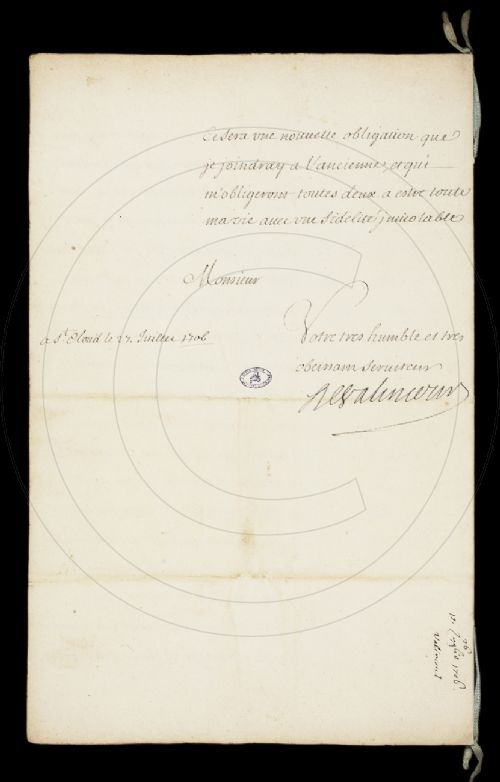 Ce sera vne nouuelle obligation que
je joindray a l'ancienne, et qui
m'obligeront toutes deux a estre toute
ma vie auec vne fidelité jnuiolable
Monsieur
a St. Cloud le 27. Juillet 1706
Votre tres humble et tres
obeissant seruiteur
DeValincour
1706